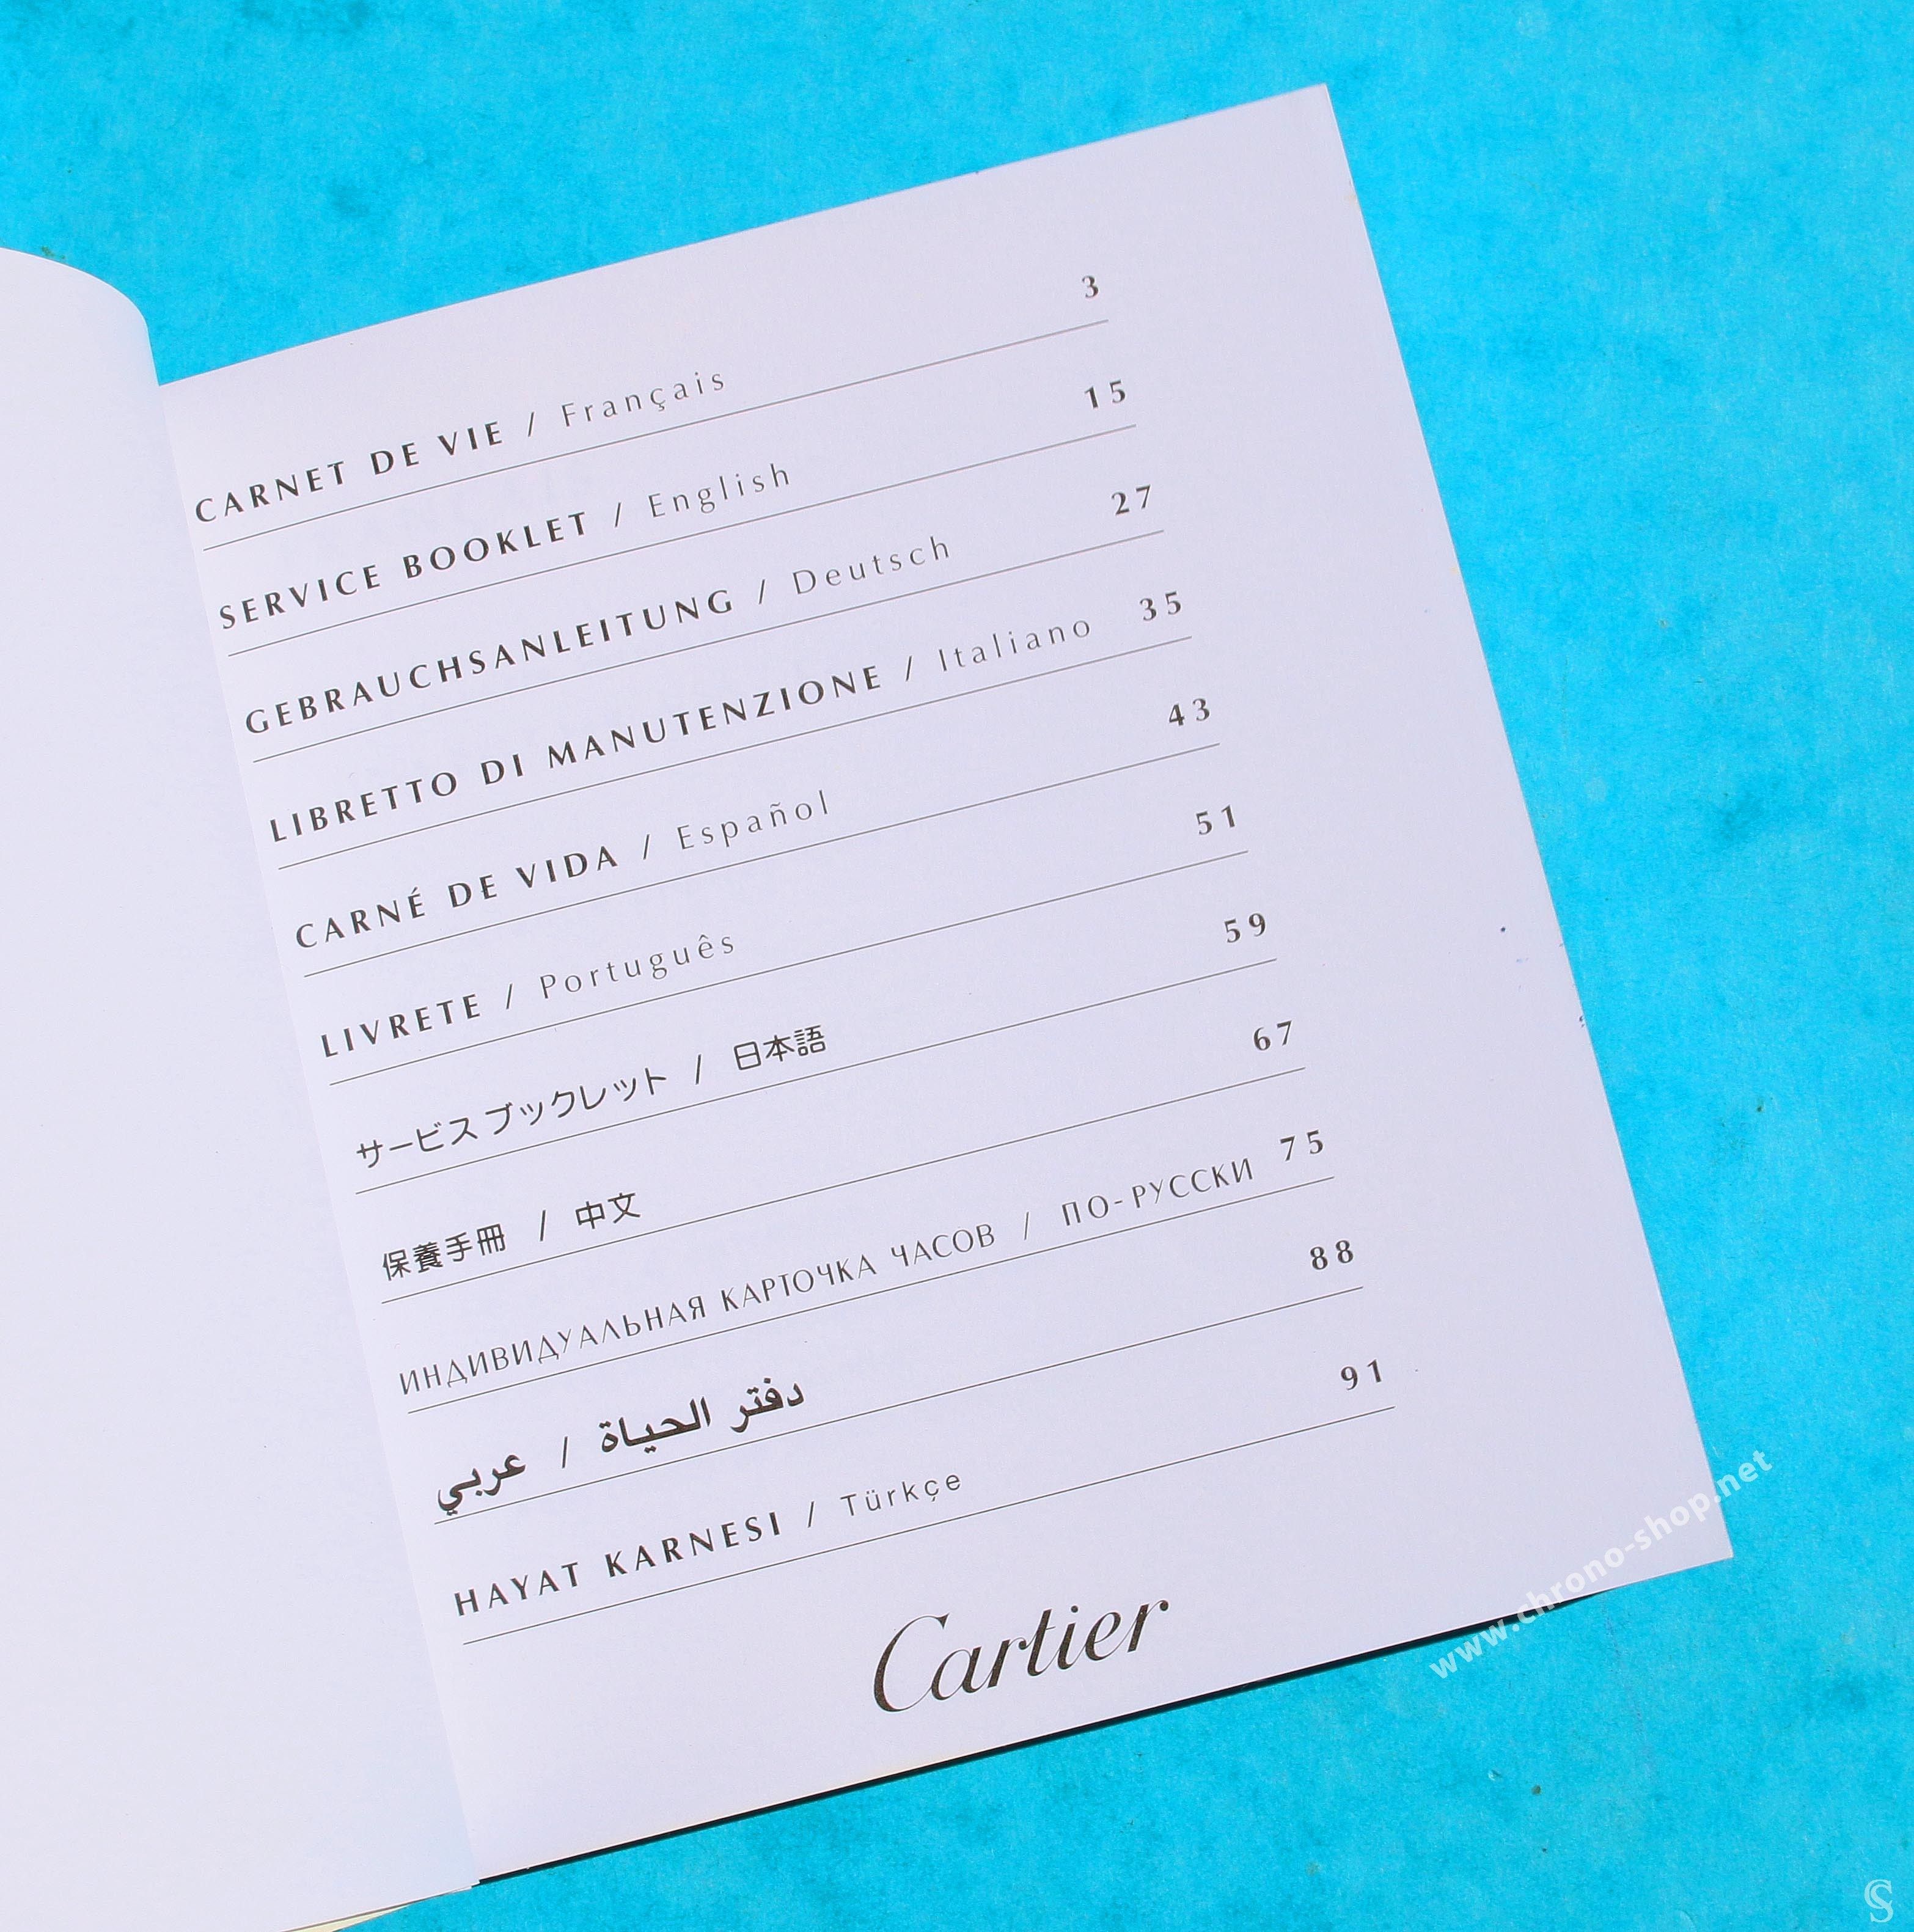 CARNET DE VIE / Français 3
SERVICE BOOKLET / English 15
GEBRAUCHSANLEITUNG / Deutsch 27
LIBRETTO DI MANUTENZIONE / Italiano 35
CARNÉ DE VIDA / Español 43
LIVRETE / Português 51
サービス ブックレット / 日本語 59
保養手冊 / 中文 67
ИНДИВИДУАЛЬНАЯ КАРТОЧКА ЧАСОВ / ПО-РУССКИ 75
دفتر الحياة / عربي 88
HAYAT KARNESI / Türkçe 91
Cartier
www.chrono-shop.net